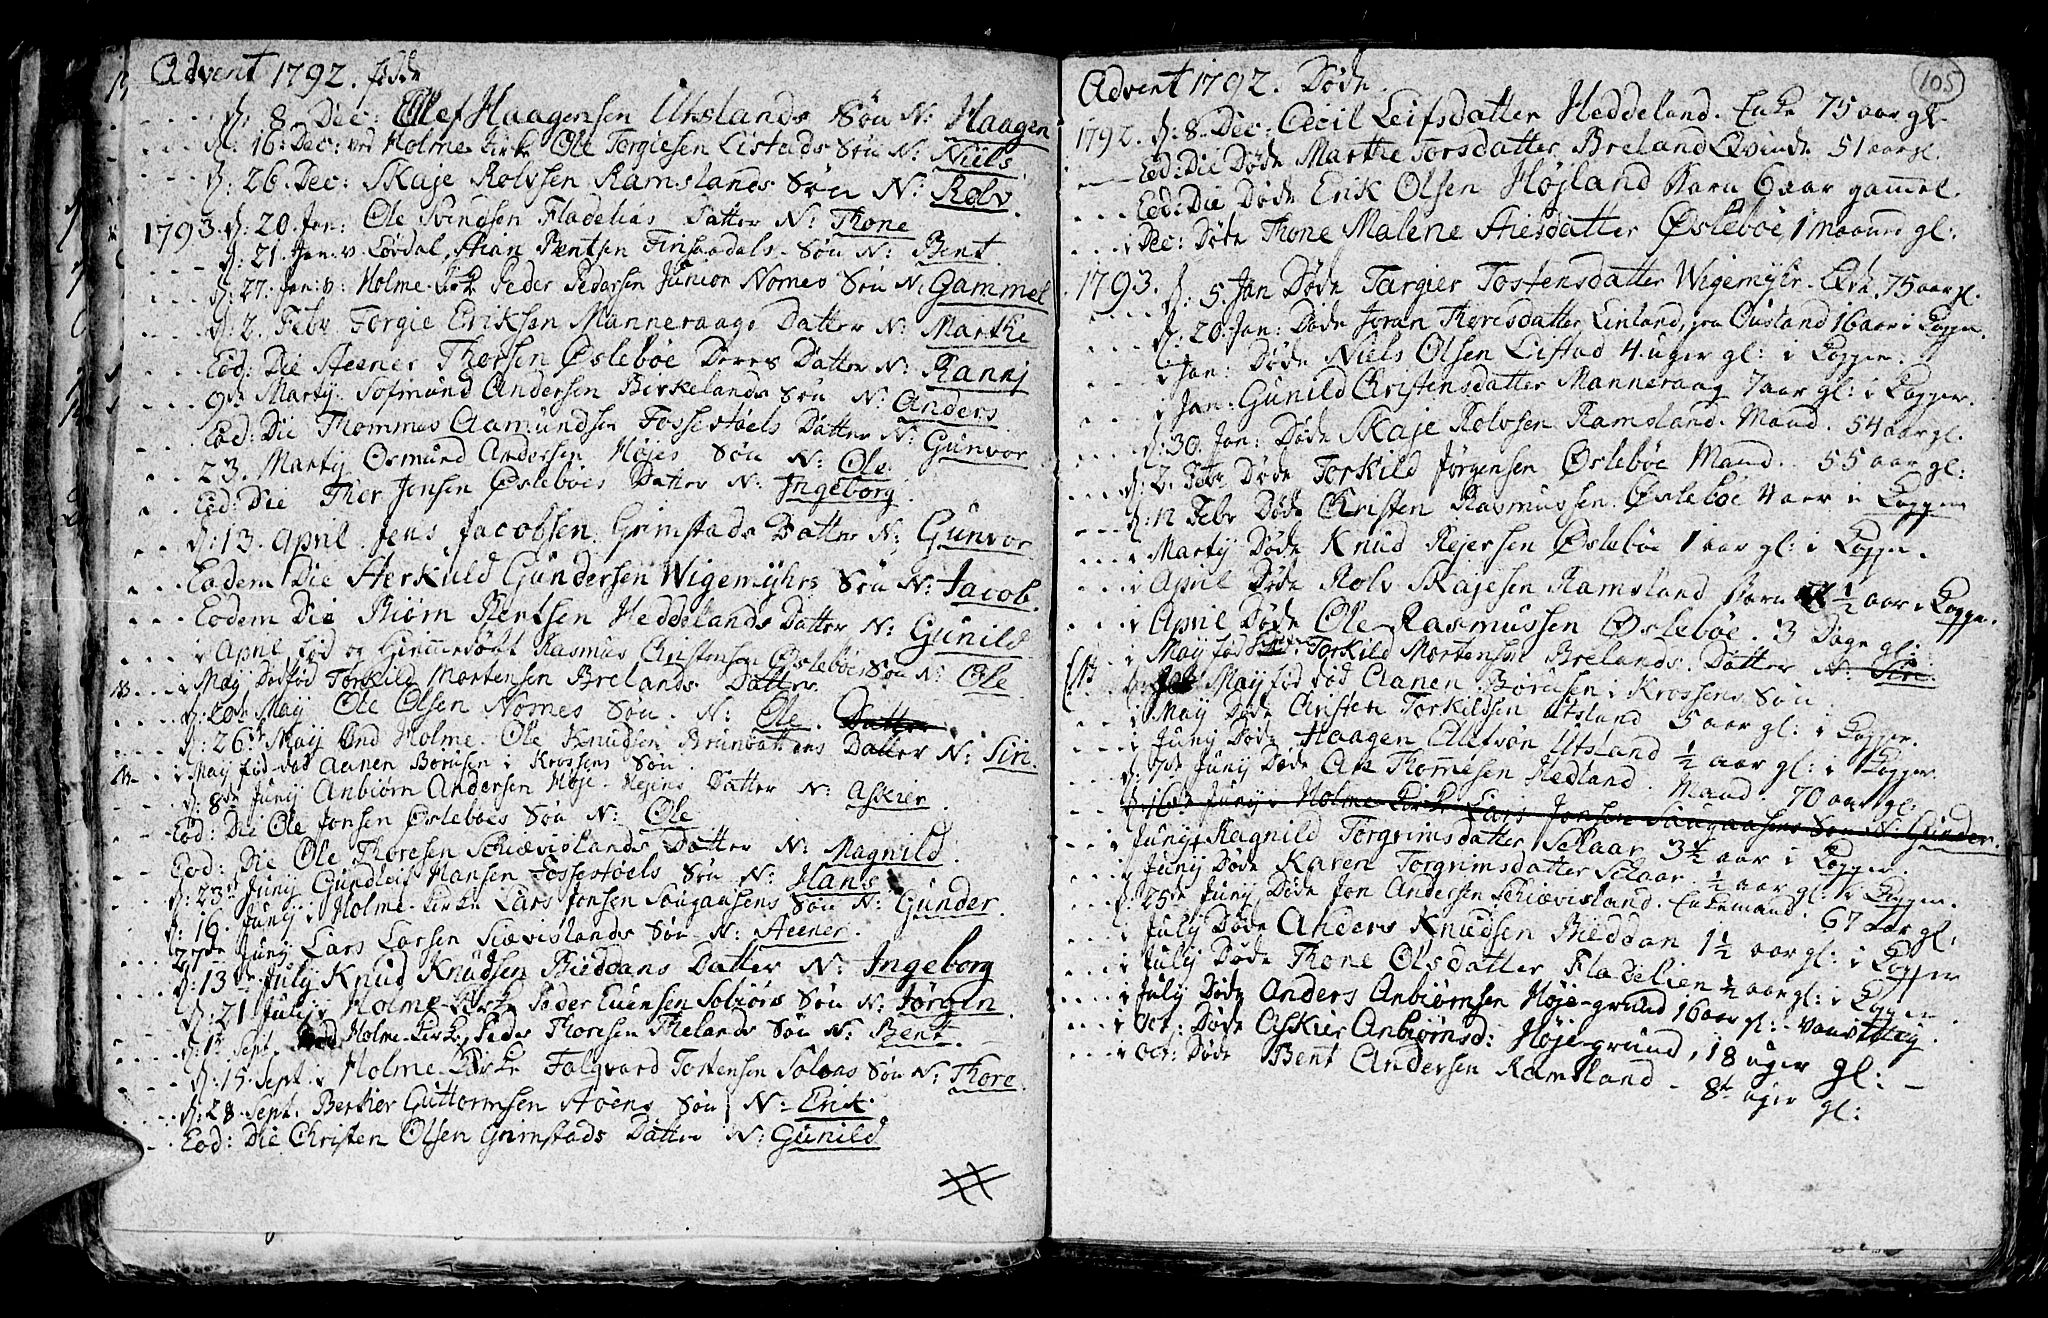 Advent 1792. fødde
d. 8. Dec: Olef Haagensen Utslands Søn N: Haagen
d. 16. Dec: ved Holme Kirke Ole Torgiesen Listads Søn N: Niels
d: 26. Dec: Skaje Rolvsen Ramslands Søn N: Rolv.
1793. d: 20. Jan: Ole Svendsen Fladeliás Datter N: Thone
d: 21. Jan: v. Løvdal, Bentsen Finsaadals Søn N: Bent.
d: 27. Jan: v: Holme Kirke Peder Pedersen Junior Nomes Søn N: Gammel
d: 2. Febr. Torgie Eriksen Manneraags Datter N: Marthe
Eod: Die Steener Thorsen Øslebøe Deres Datter N: Rannj
9de Martij. Sofmund Andersen Birkelands Søn N: Anders.
Eod: Die Thommas Aamundsen Fossestøels Datter N: Gunvor
23. Martij Osmund Andersen Højes Søn N: Ole
Eod: Die Thor Jensen Øslebøes Datter N: Ingeborg.
d: 13. April. Jens Jacobsen Grimstads Datter N: Gunvor
Eodem Die Sterkuld Gundersen Wigemyhrs Søn N: Jacob.
Eodem Die Biørn Bentsen Heddelands Datter N: Gunild
i April fød og Hiemmedøbt Rasmus Christensen Øslebøes Søn N: Ole
i Maij Dødfød Torkild Mortensen Brelands Datter
d: Maij Ole Olsen Nomes Søn. N: Ole. Datter
d: 26de Maij Holme. Ole Knudsen Brunvattens Datter N: Siri.
i Maij fød død Aanen Børusen i Krossens Søn.
d: 8de Junij Anbiørn Andersen Høje Datter N: Askier.
Eod: Die Ole Jonsen Øslebøes Søn N: Ole
Eod: Die Ole Thoresen Schiævislands Datter N: Magnild.
d: 23de Junij Gundleif Hansen Fossestøels Søn N: Hans
d: 16. Junij i Holme Kirke Lars Jonsen Saugaasens Søn N: Gunder.
Junij Lars Larsen Siævislands Søn N: Steener.
d: 13de Julij Knud Knudsen Bieddans Datter N: Ingeborg
d: 21 Julij i Holme Kirke Peder Evensen Solbiørs Søn N: Jørgen.
d: 1te Sept. ved Holme Kirke, Peder Thoresen Thelands Søn N: Bent.
d: 15. Sept. i Holme Kirke Falqvard Tostensen Solaas Søn N: Thore.
d: 28. Sept. Berkier Guttormsen Støens Søn N: Erik.
Eod: Die Christen Olsen Grimstads Datter N: Gunild
105
Advent 1792. Døde.
1792. d: 8. Dec: Cecil Leifsdatter Heddeland. Enke 75 aar gl.
Eod: Die Døde Marthe Torsdatter Breland Qvinde 51 aar gl.
Eod: Die Døde Erik Olsen Højland Barn 6 aar gammel.
i Dec: Døde Thone Malene Øslebøe, 1 maaned gl:
1793. d. 5. Jan Døde Targier Tostensdatter Wigemyhr. 75 aar gl.
d: 20. Jan: Døde Joran Thorisdatter Linland, fra Ousland 16 aar i Kopper.
i Jan: Døde Niels Olsen Listad 4. uger gl: i Kopper.
i Jan: Gunild Christensdatter Manneraag 7 aar gl: i Kopper.
d: 30. Jan: Døde Skaje Rolvsen Ramsland. Mand. 54 aar gl.
d: 2. Febr. Døde Torkild Jørgensen Øslebøe Mand. 55 aar gl:
d: 12 Febr Døde Christen Rasmussen Øslebøe 4 aar i Kopper
i Martij Døde Knud Rejersen Øslebøe 1 aar gl: i Kopper.
i April Døde Rolv Skajesen Ramsland Barn ½ aar i Kopper.
i April Døde Ole Rasmussen Øslebøe. 3 Dage gl:
i Maij fød Torkild Mortensen Brelands. Datter N: Siri.
Maij fød død Aanen Børusen i Krossens Søn
i Maij Døde Christen Torkildsen Utsland 5 aar gl: i Kopper.
i Junij Døde Haagen Olefsøn Utsland ½ aar gl: i Kopper.
d: 7de Junij Døde Thommesen Hedland. Mand 70 aar gl:
d. 16. Junij i Holme Kirke Lars Jonsen Saugaasens Søn N: Gunder.
i Junij Ragnild Torgrimsdatter Selaar 3½ aar i Kopper.
i Junij Døde Karen Torgrimsdatter Selaar. ½ aar gl. i Kopper.
d: 25de Junij Døde Jon Andersen Schiævisland. Enkemand. 67 aar gl.
i Julij Døde Anders Knudsen Bieddan 1½ aar gl: i Kopper
i Julij Døde Thone Olsdatter Fladelien ½ aar gl: i Kopper
i Julij Døde Anders Anbiørnsen Høje-grund 16 aar gl: -
i Oct: Døde Askier Anbiørnsd: Høje-grund, 18 uger gl: -
i Oct: Døde Bent Andersen Ramsland - 8te uger gl: